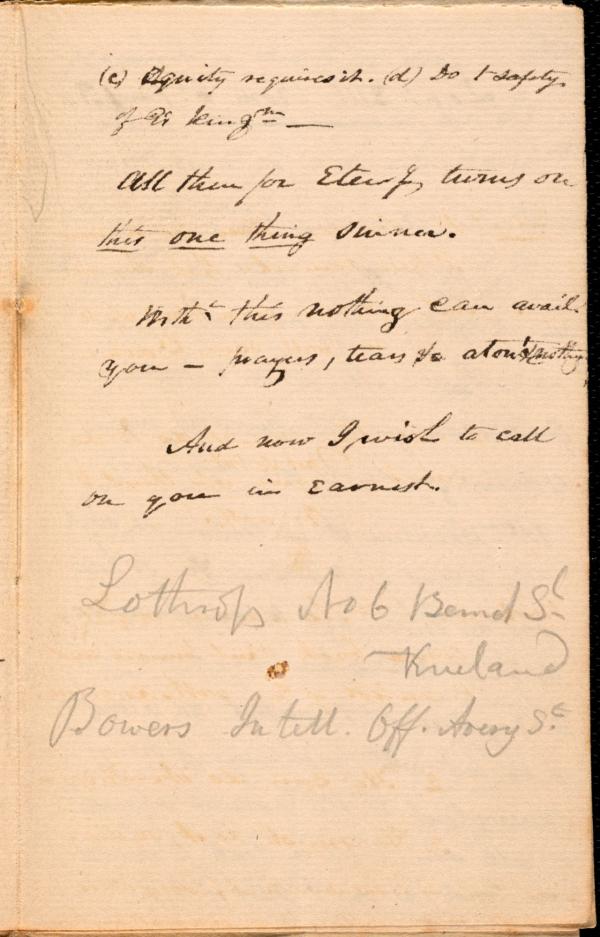 (c) Equity requires it. (d) Do t safety
of G's King^m —
All then for Eterny, turns on
this one thing sinner.
With^t this nothing can avail
you – prayers, tears &c aton^t nothg
And now I wish to call
on you in earnest.
Lothrop No 6 Bennd St.
Kneeland
Bowers Intell. Off. Avery St